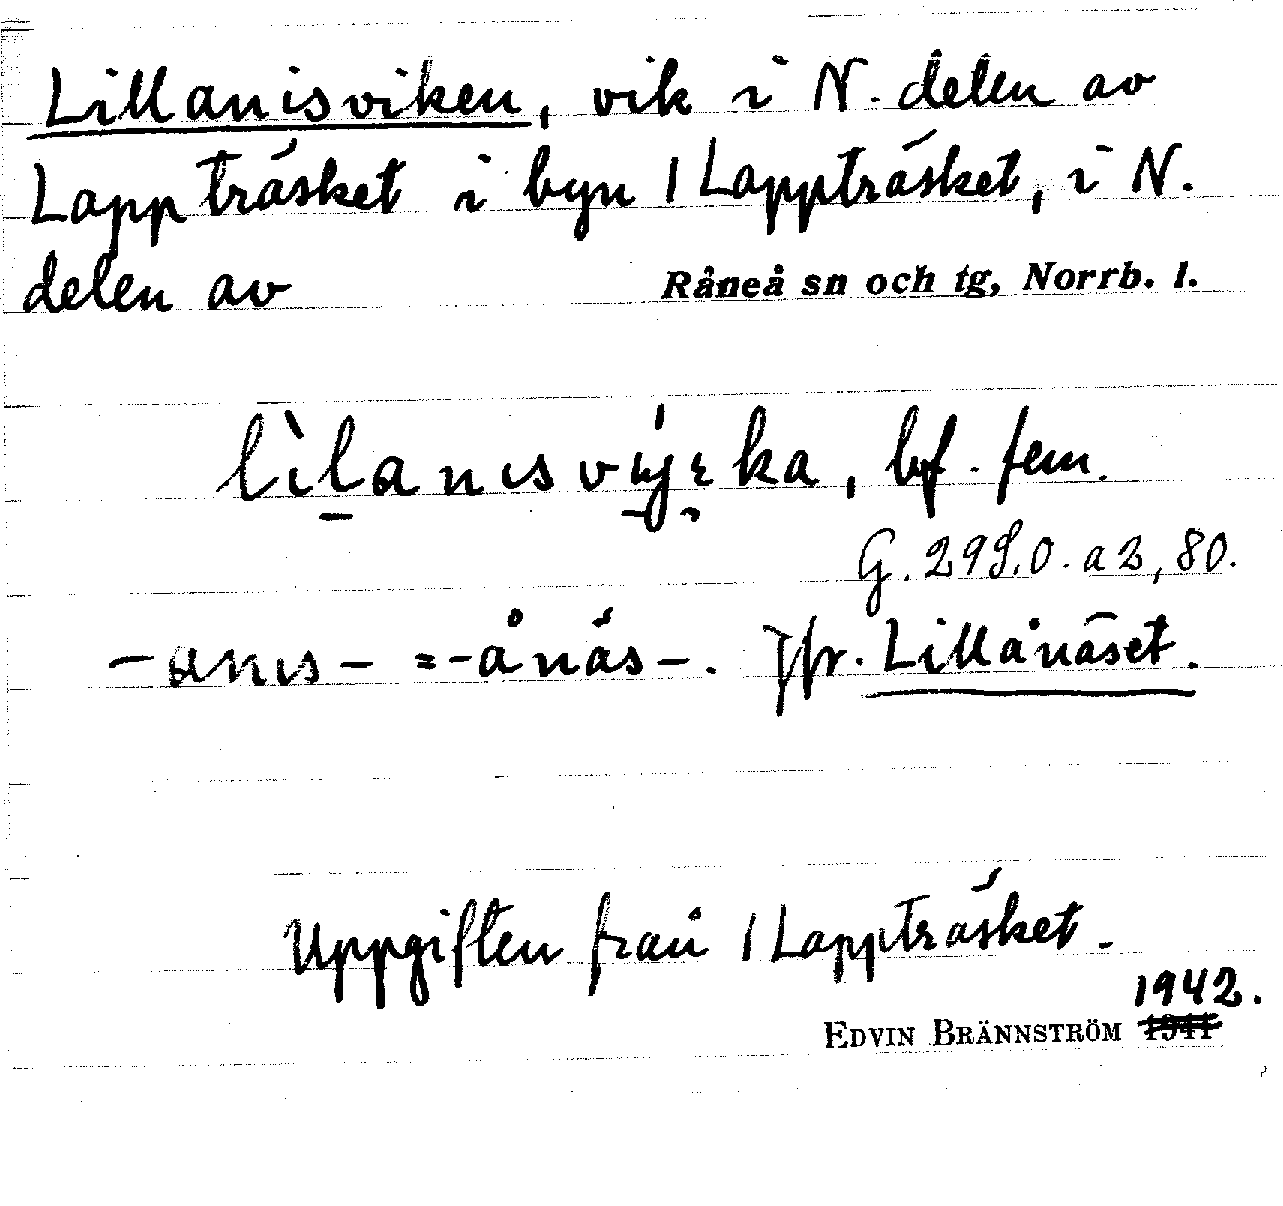 Lillanisviken, vik i N. delen av
Lappträsket i byn 1 Lappträsket, i N.
delen av Råneå sn och tg, Norrb. l.
bf. fem.
G. 298.0. a 2, 80.
-anıs- = -ånäs-. Jfr. Lillånäset.
Uppgiften från 1 Lappträsket.
1942.
EDVIN BRÄNNSTRÖM 1941